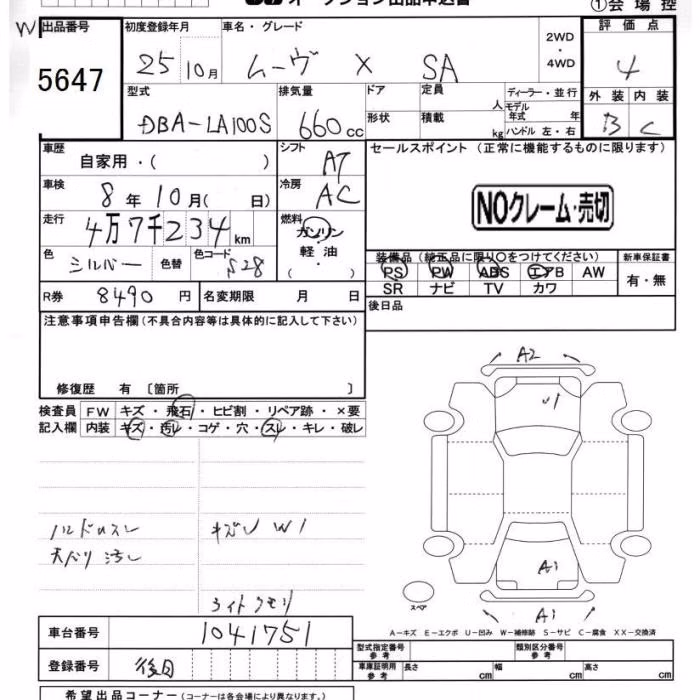 オークション出品申込書
①会場控
W
出品番号
5647
初度登録年月
25 10月
車名・グレード
ムーヴ X SA
2WD
・
4WD
評価点
4
型式
DBA-LA100S
排気量
660cc
ドア
形状
定員 人
積載 kg
ディーラー・並行
モデル年式 年
ハンドル 左・右
外装 内装
B C
車歴
自家用・( )
シフト
AT
セールスポイント (正常に機能するものに限ります)
NOクレーム・売切
車検
8年10月( 日)
冷房
AC
走行
4万7千234km
燃料
ガソリン
・
軽油
・
( )
色
シルバー
色替
色コード
S28
装備品 (純正品に限り〇をつけてください)
PS PW ABS エアB AW
SR ナビ TV カワ
新車保証書
有・無
R券 8490円
名変期限 月 日
後日品
注意事項申告欄 (不具合内容等は具体的に記入して下さい)
修復歴 有 〔箇所 〕
検査員
記入欄
FW キズ・飛石・ヒビ割・リペア跡・×要
内装 キズ・汚レ・コゲ・穴・スレ・キレ・破レ
A2
U1
ハンドルスレ
天バリ汚レ
W1
ライトクモリ
A1
A1
スペア
A-キズ E-エクボ U-凹み W-補修跡 S-サビ C-腐食 XX-交換済
車台番号
1041751
登録番号
後日
型式指定番号
参考
類別区分番号
参考
車庫証明用
参考
長さ cm
幅 cm
高さ cm
希望出品コーナー (コーナーは各会場により異なります。)